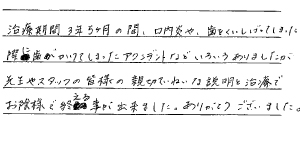 治療期間3年5ヶ月の間、口内炎や、歯をくいしばってしまった
際に歯がかけてしまったアクシデントなどいろいろありましたが
先生やスタッフの皆様の親切ていねいな説明と治療で
お陰様で終える事が出来ました。ありがとうございました。